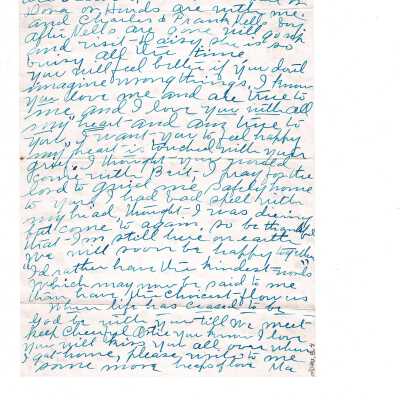 Dora & Hinds are with me
and Charles & Frank Kells, boy
after Kells are gone will go up
and visit Daisy she is so
busy all the time,
you will feel better if you don't
imagine wrong things, I know
you love me and are true to
me, and I love you with all
my heart and am true to
you, I want you to feel happy
my heart is touched with your
grief I thought you would
come with Bert, I pray for the
lord to guide me safely home
to you, I had bad spell with
my head, thought I was dieing
but come to again, so be thankful
that I'm still here on earth
we will soon be happy together
"I'd rather have the kindest words
Which may now be said to me
than have the choicest flowers
When life has ceased to be
God be with you till we meet
keep Cheerful Ortie you know I love
you will kiss you all over when
I get home, please write to me
some more heaps of love Ma